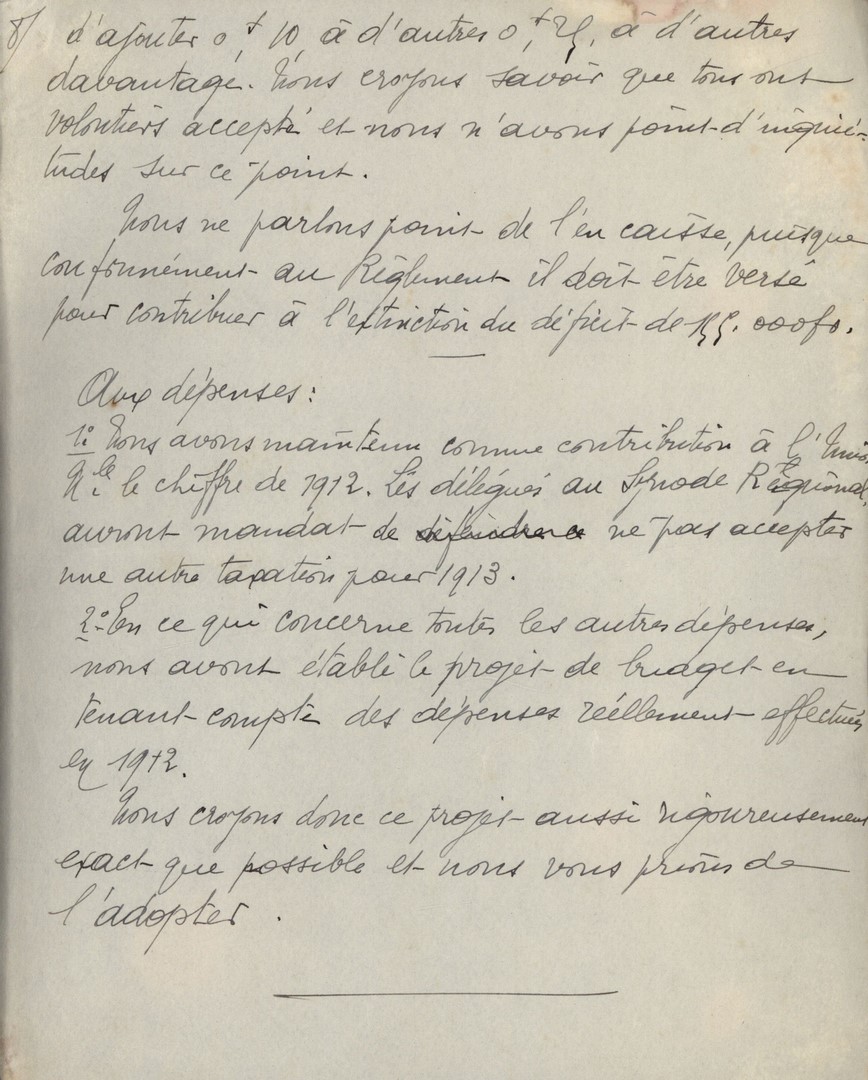 8/ d'ajouter 0f,10, à d'autres 0f,25, à d'autres
davantage. Nous croyons savoir que tous ont
volontiers accepté et nous n'avons point d'inquié-
tudes sur ce point.
Nous ne parlons point de l'en caisse, puisque
conformément au Règlement il doit être versé
pour contribuer à l'extinction du déficit de 000f.
Aux dépenses :
1° Nous avons maintenu comme contribution à l'Union
Nle le chiffre de 1912. Les délégués au Synode Régional,
auront mandat de ne pas accepter
une autre taxation pour 1913.
2° En ce qui concerne toutes les autres dépenses,
nous avont établi le projet de budget en
tenant compte des dépenses réellement effectuées
en 1912.
Nous croyons donc ce projet aussi rigoureusement
exact que possible et nous vous prions de
l'adopter.